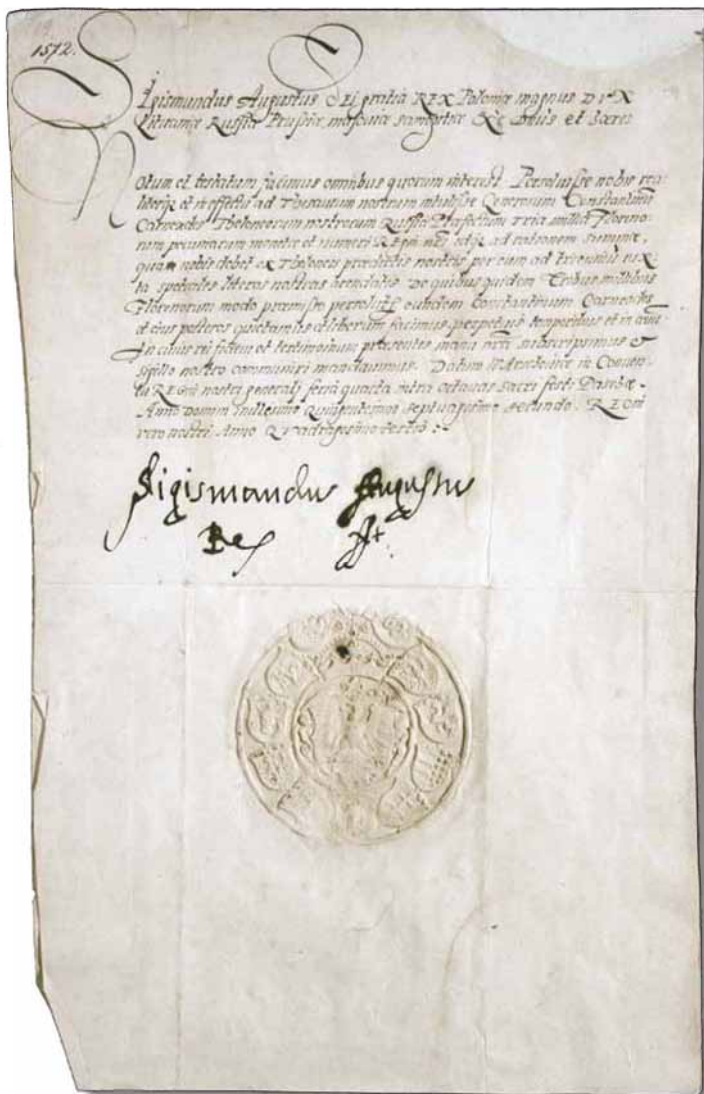 1572.
Sigismundus Augustus Dei gratia REX Poloniæ magnus DVX
Lituaniæ Russiæ Prussiæ, masoviæ samogitiæ &c Dnus et hæres
Notum et testatum facimus omnibus quorum interest Persoluisse nobis rea-
liter et in effectu ad Thesaurum nostrum intulisse Generosum Constantinũ
Theloneorum nostrorum Russiæ Præfectum Tria millia Floreno-
rum pecuniarum monetæ et numeri REgni nri ad rationem summæ,
quam nobis debet ex Theloneis prædictis nostris per eum ad triennium
ta speciales literas nostras arendatis De quibus quidem Tribus millibus
Florenorum modo præmisso persolutis eundem Constantinum
et eius posteros quietamus et liberum facimus perpetuis temporibus
In cuius rei fidem et testimonium præsentes manu nra subscripsimus et
sigillo nostro communiri mandauimus. Datum Warschouiæ in Conuen-
tu REgni nostri generali feria quarta intra octauas sacri festi Paschæ.
Anno Domini Millesimo Quingentesimo septuagesimo secundo. REgni
vero nostri Anno Quadragesimo tertio
Sigismundus Augustus
Rex